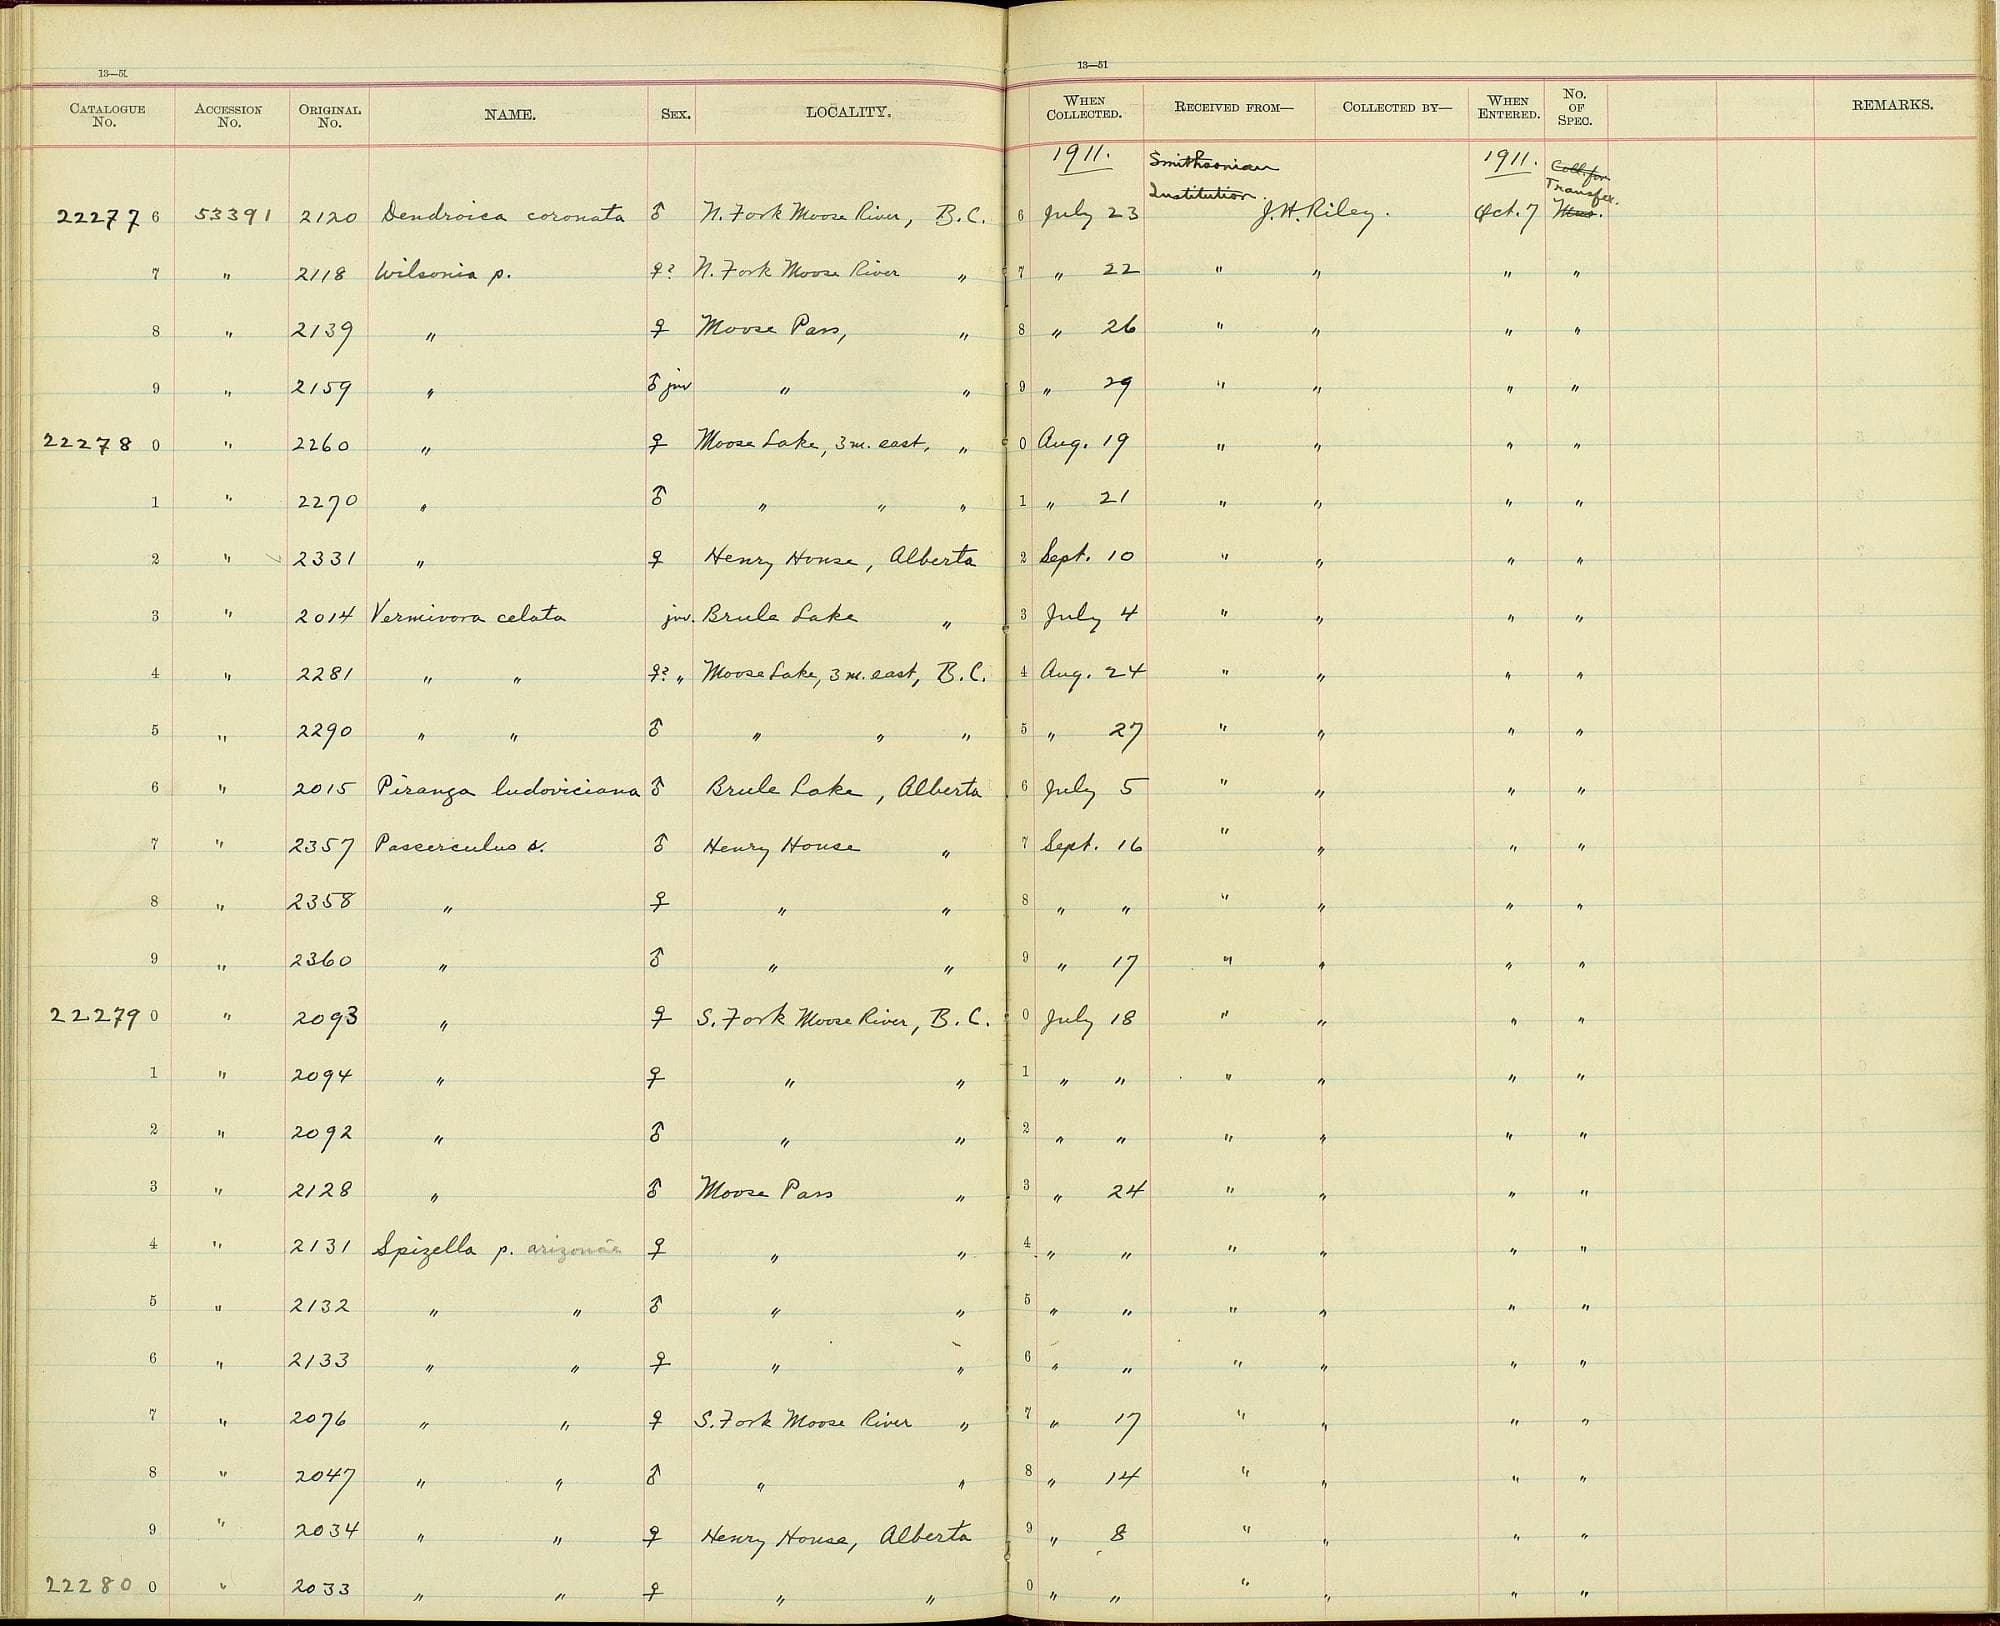 13—51
13—51
CATALOGUE No. ACCESSION No. ORIGINAL No. NAME. SEX. LOCALITY. WHEN COLLECTED. RECEIVED FROM— COLLECTED BY— WHEN ENTERED. No. OF SPEC. REMARKS.
1911. Smithsonian 1911. Coll. for
Institution. Transfer.
22277 6 53391 2120 Dendroica coronata ♂ N. Fork Moose River, B.C. 6 July 23 J.H. Riley. Oct. 7 Mus.
7 " 2118 Wilsonia p. ♀? N. Fork Moose River " 7 " 22 " " " "
8 " 2139 " ♀ Moose Pass, " 8 " 26 " " " "
9 " 2159 " ♂ juv " " 9 " 29 " " " "
22278 0 " 2260 " ♀ Moose Lake, 3 m. east, " 0 Aug. 19 " " " "
1 " 2270 " ♂ " " " 1 " 21 " " " "
2 " 2331 " ♀ Henry House, Alberta 2 Sept. 10 " " " "
3 " 2014 Vermivora celata juv. Brule Lake " 3 July 4 " " " "
4 " 2281 " " ♀? " Moose Lake, 3 m. east, B.C. 4 Aug. 24 " " " "
5 " 2290 " " ♂ " " " 5 " 27 " " " "
6 " 2015 Piranga ludoviciana ♂ Brule Lake, Alberta 6 July 5 " " " "
7 " 2357 Passerculus s. ♂ Henry House " 7 Sept. 16 " " " "
8 " 2358 " ♀ " " 8 " " " " " "
9 " 2360 " ♂ " " 9 " 17 " " " "
22279 0 " 2093 " ♀ S. Fork Moose River, B.C. 0 July 18 " " " "
1 " 2094 " ♀ " " 1 " " " " " "
2 " 2092 " ♂ " " 2 " " " " " "
3 " 2128 " ♂ Moose Pass " 3 " 24 " " " "
4 " 2131 Spizella p. arizonae ♀ " " 4 " " " " " "
5 " 2132 " " ♂ " " 5 " " " " " "
6 " 2133 " " ♀ " " 6 " " " " " "
7 " 2076 " " ♀ S. Fork Moose River " 7 " 17 " " " "
8 " 2047 " " ♂ " " 8 " 14 " " " "
9 " 2034 " " ♀ Henry House, Alberta 9 " 8 " " " "
22280 0 " 2033 " " ♀ " " 0 " " " " " "